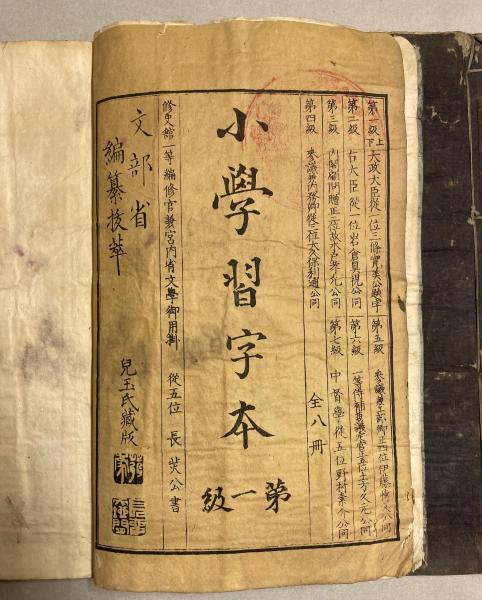 第一級上下 大政大臣從一位三條實美公題字
第二級 右大臣從一位岩倉具視公同
第三級 内閣顧問贈正三位故木戸孝允公同
第四級 參議兼内務卿從三位大久保利通公同
第五級 參議兼工部卿正四位伊藤博文公同
第六級 一等侍補兼議官正五位土方久元公同
第七級 中督學從五位野村素介公同
全八冊
小學習字本
第一級
修史館一等編修官兼宮内省文學御用掛 從五位 長炗公書
文部省
編纂抜萃
兒玉氏藏版